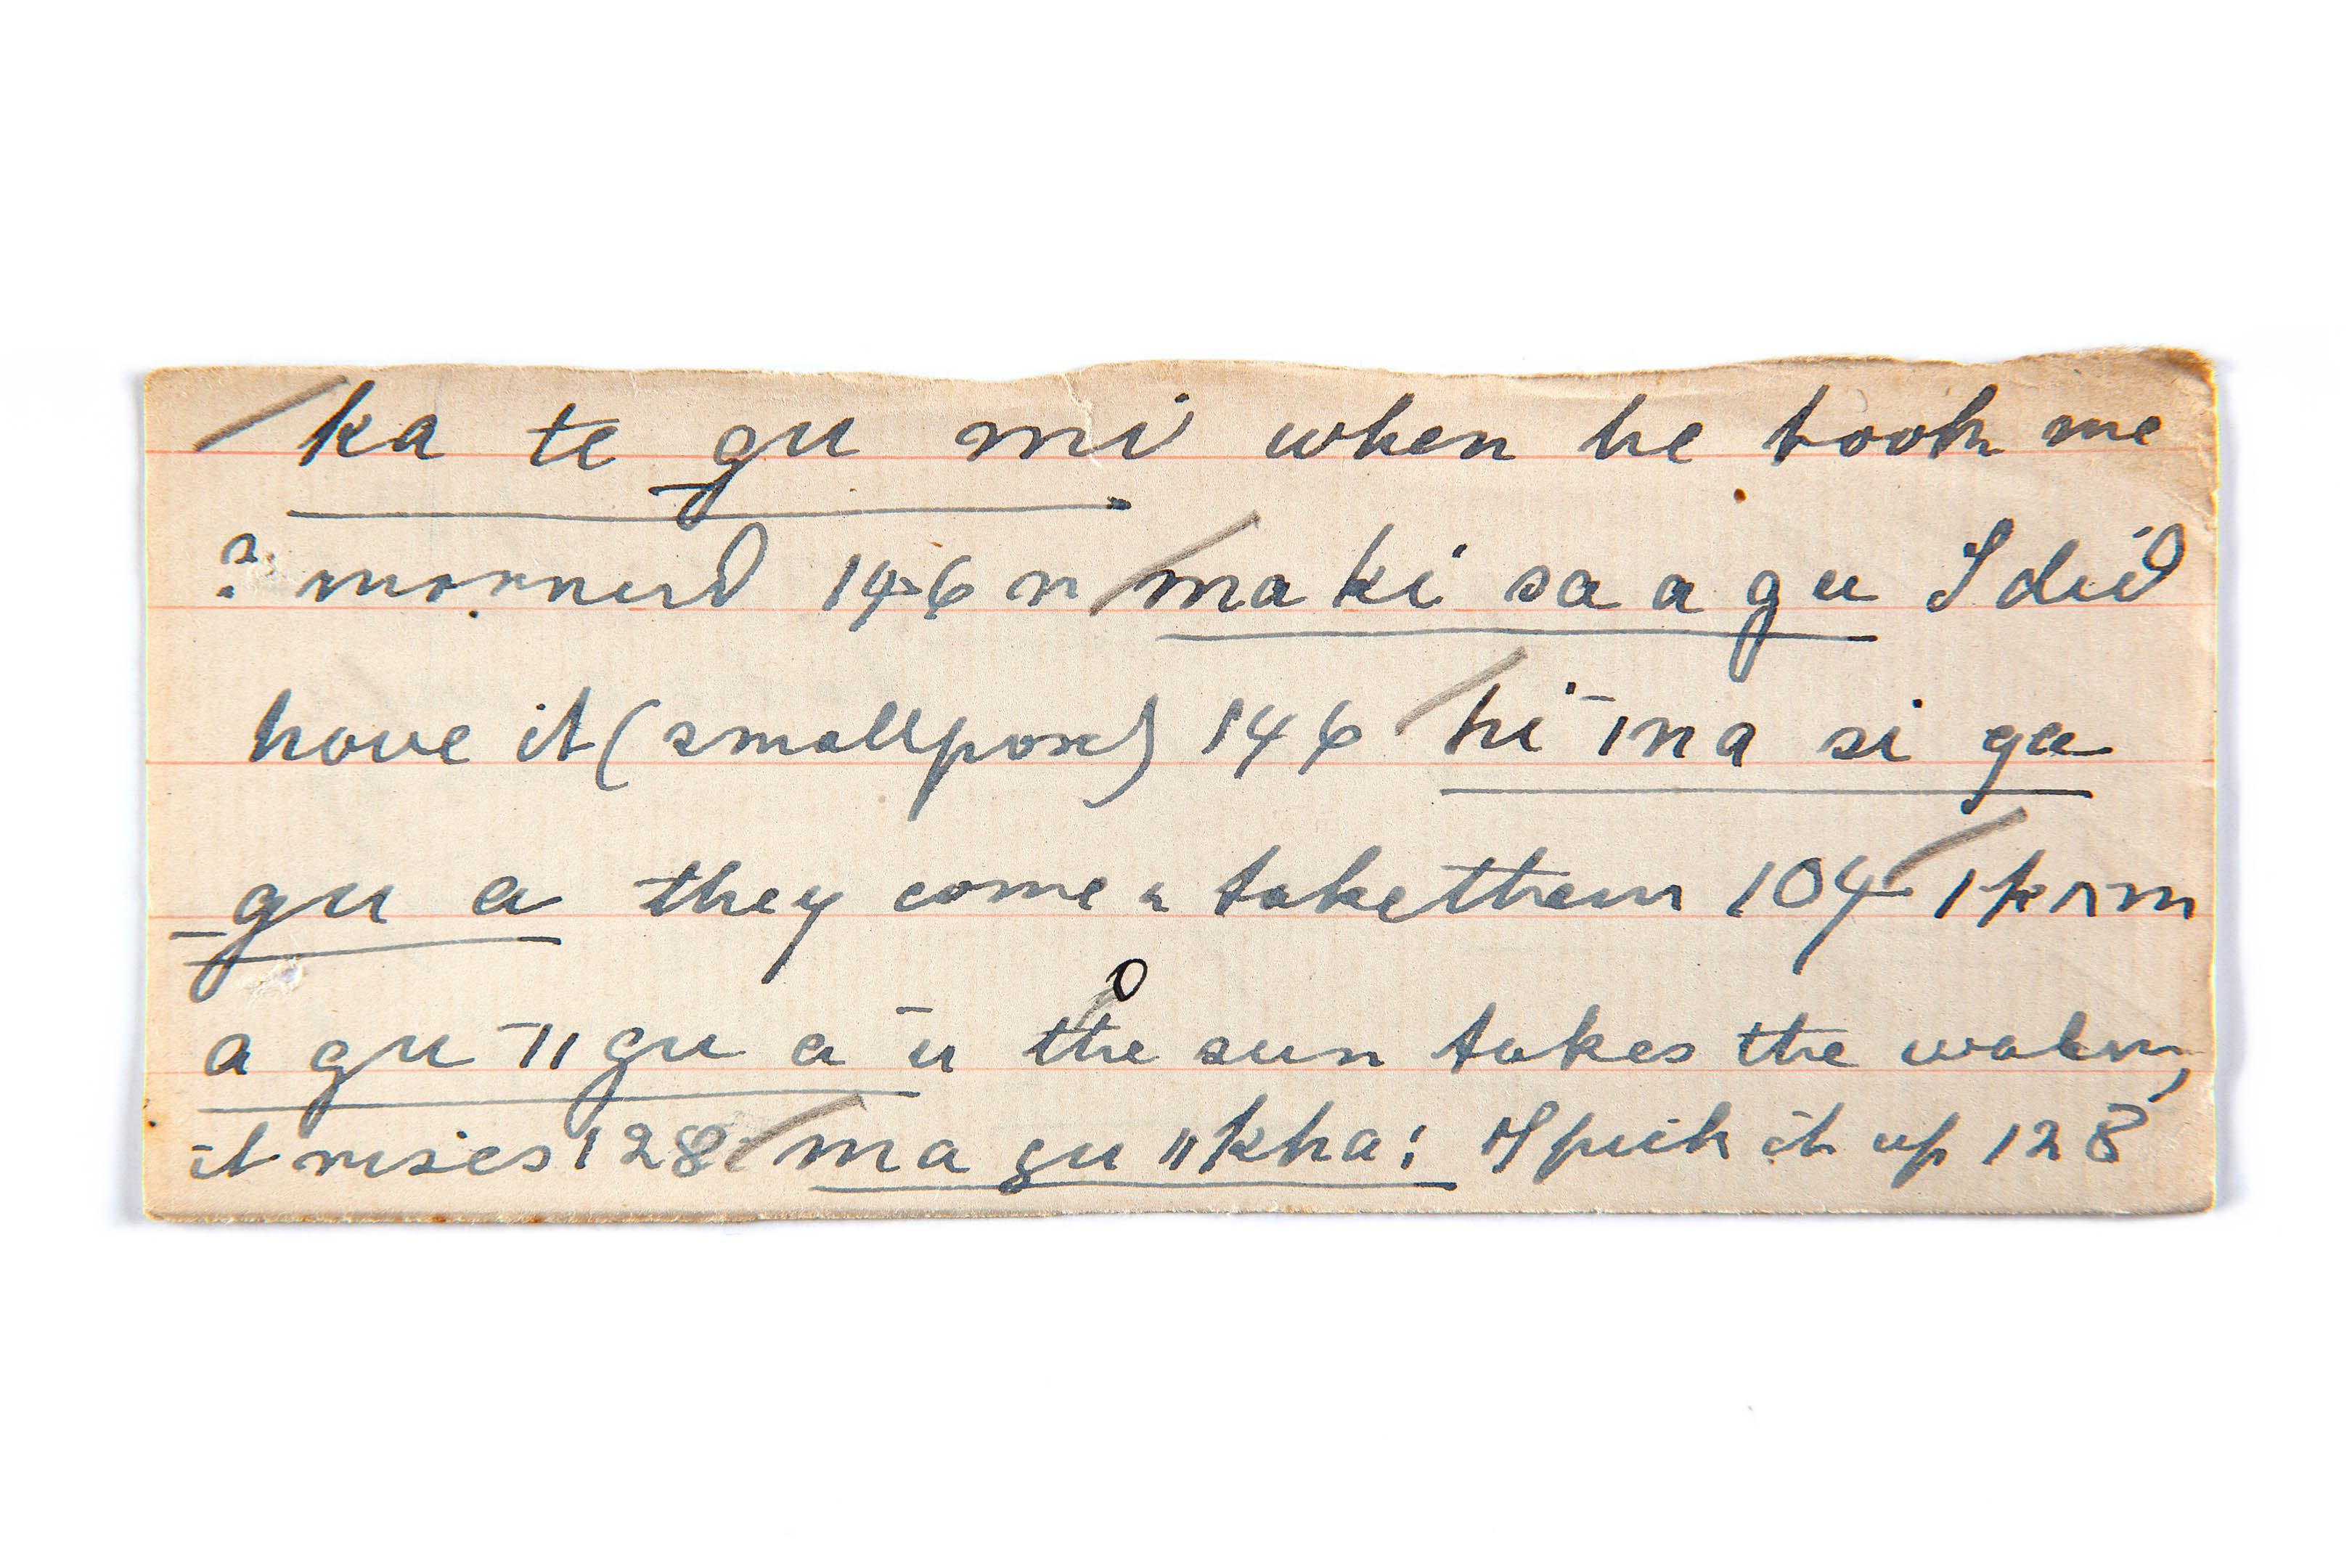 /ka te gu mi when he took me
? mornerd 146 n /ma ki sa a gu I did
have it (smallpox) 146 /hi ¯ına si ga
gu a they come & take them 104 /
a gu ¯ıı gu a ū the sun takes the water,
it rises 128 /ma gu ıı kha: If pick it up 128